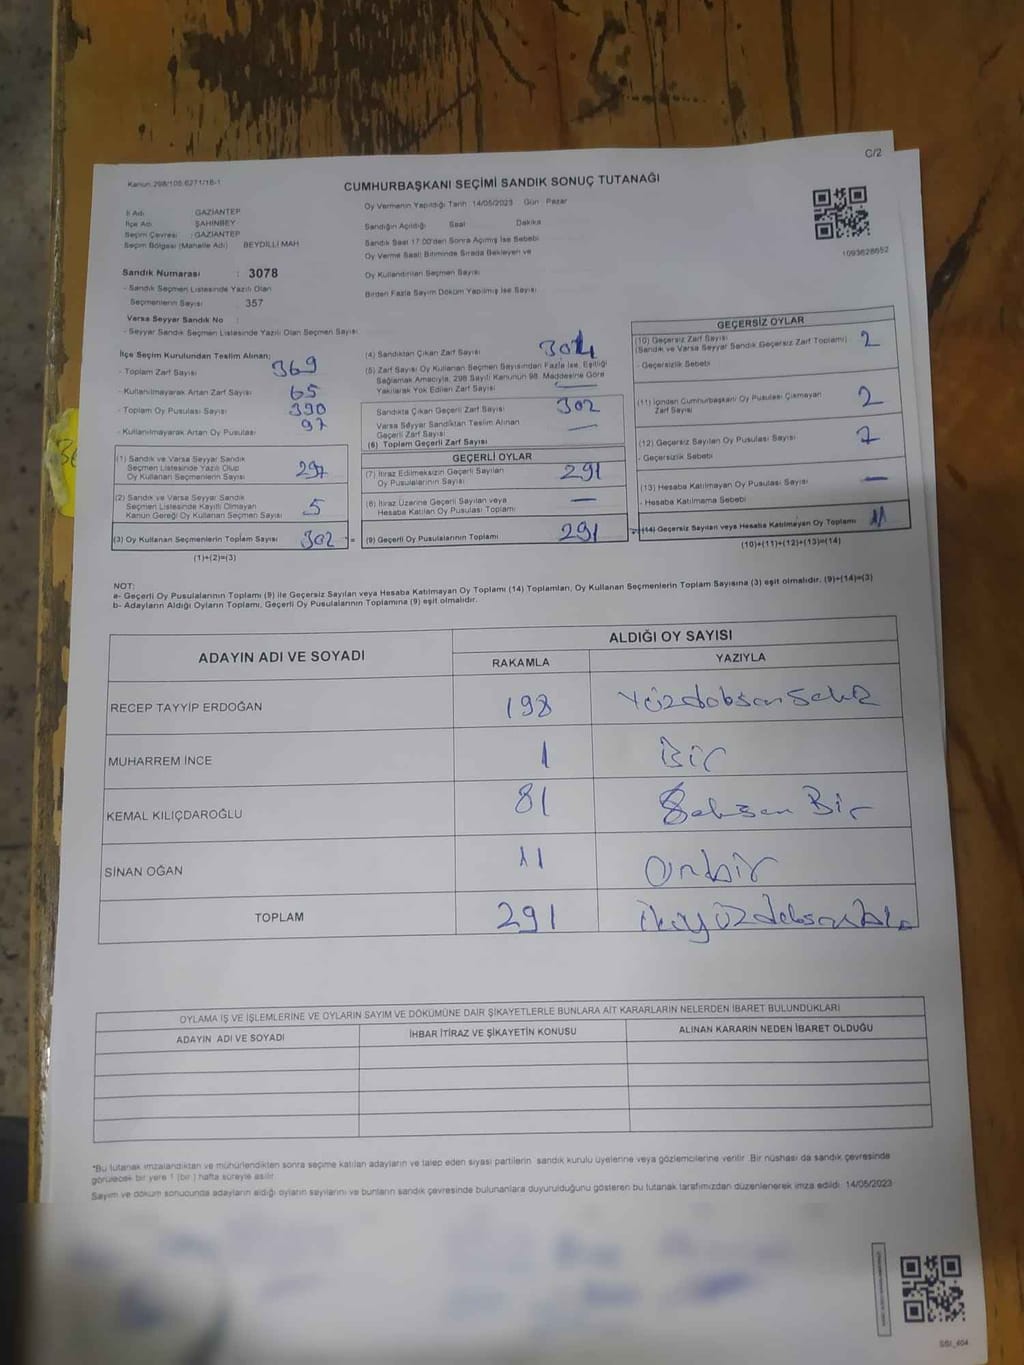 C/2
Kanun:298/105.6271/18-1
CUMHURBAŞKANI SEÇİMİ SANDIK SONUÇ TUTANAĞI
İl Adı GAZİANTEP
İlçe Adı ŞAHİNBEY
Seçim Çevresi : GAZİANTEP
Seçim Bölgesi (Mahalle Adı) BEYDİLLİ MAH
Oy Vermenin Yapıldığı Tarih 14/05/2023 Gün Pazar
Sandığın Açıldığı Saat Dakika
Sandık Saat 17:00'den Sonra Açılmış İse Sebebi
Oy Verme Saati Bitiminde Sırada Bekleyen ve
Oy Kullandırılan Seçmen Sayısı
Birden Fazla Sayım Döküm Yapılmış İse Sayısı
1093628652
Sandık Numarası : 3078
- Sandık Seçmen Listesinde Yazılı Olan
Seçmenlerin Sayısı 357
Varsa Seyyar Sandık No :
- Seyyar Sandık Seçmen Listesinde Yazılı Olan Seçmen Sayısı:
İlçe Seçim Kurulundan Teslim Alınan;
- Toplam Zarf Sayısı 369
- Kullanılmayarak Artan Zarf Sayısı 65
- Toplam Oy Pusulası Sayısı 390
- Kullanılmayarak Artan Oy Pusulası 97
(1) Sandık ve Varsa Seyyar Sandık
Seçmen Listesinde Yazılı Olup
Oy Kullanan Seçmenlerin Sayısı 297
(2) Sandık ve Varsa Seyyar Sandık
Seçmen Listesinde Kayıtlı Olmayan
Kanun Gereği Oy Kullanan Seçmen Sayısı 5
(3) Oy Kullanan Seçmenlerin Toplam Sayısı 302 =
(1)+(2)=(3)
(4) Sandıktan Çıkan Zarf Sayısı 304
(5) Zarf Sayısı Oy Kullanan Seçmen Sayısından Fazla İse, Eşitliği
Sağlamak Amacıyla, 298 Sayılı Kanunun 98. Maddesine Göre
Yakılarak Yok Edilen Zarf Sayısı —
Sandıkta Çıkan Geçerli Zarf Sayısı 302
Varsa Seyyar Sandıktan Teslim Alınan
Geçerli Zarf Sayısı —
(6) Toplam Geçerli Zarf Sayısı
GEÇERLİ OYLAR
(7) İtiraz Edilmeksizin Geçerli Sayılan
Oy Pusulalarının Sayısı 291
(8) İtiraz Üzerine Geçerli Sayılan veya
Hesaba Katılan Oy Pusulası Toplamı —
(9) Geçerli Oy Pusulalarının Toplamı 291
GEÇERSİZ OYLAR
(10) Geçersiz Zarf Sayısı
(Sandık ve Varsa Seyyar Sandık Geçersiz Zarf Toplamı) 2
- Geçersizlik Sebebi
(11) İçinden Cumhurbaşkanı Oy Pusulası Çıkmayan
Zarf Sayısı 2
(12) Geçersiz Sayılan Oy Pusulası Sayısı 7
- Geçersizlik Sebebi
(13) Hesaba Katılmayan Oy Pusulası Sayısı —
- Hesaba Katılmama Sebebi
(14) Geçersiz Sayılan veya Hesaba Katılmayan Oy Toplamı 11
(10)+(11)+(12)+(13)=(14)
NOT:
a- Geçerli Oy Pusulalarının Toplamı (9) ile Geçersiz Sayılan veya Hesaba Katılmayan Oy Toplamı (14) Toplamları, Oy Kullanan Seçmenlerin Toplam Sayısına (3) eşit olmalıdır. (9)+(14)=(3)
b- Adayların Aldığı Oyların Toplamı, Geçerli Oy Pusulalarının Toplamına (9) eşit olmalıdır.
ADAYIN ADI VE SOYADI ALDIĞI OY SAYISI
RAKAMLA YAZIYLA
RECEP TAYYİP ERDOĞAN 198 Yüzdoksansekiz
MUHARREM İNCE 1 Bir
KEMAL KILIÇDAROĞLU 81 Seksen Bir
SİNAN OĞAN 11 Onbir
TOPLAM 291 ikiyüzdoksanbir
OYLAMA İŞ VE İŞLEMLERİNE VE OYLARIN SAYIM VE DÖKÜMÜNE DAİR ŞİKAYETLERLE BUNLARA AİT KARARLARIN NELERDEN İBARET BULUNDUKLARI
ADAYIN ADI VE SOYADI İHBAR İTİRAZ VE ŞİKAYETİN KONUSU ALINAN KARARIN NEDEN İBARET OLDUĞU
*Bu tutanak imzalandıktan ve mühürlendikten sonra seçime katılan adayların ve talep eden siyasi partilerin sandık kurulu üyelerine veya gözlemcilerine verilir. Bir nüshası da sandık çevresinde
görülecek bir yere 1 (bir) hafta süreyle asılır.
Sayım ve döküm sonucunda adayların aldığı oyların sayılarını ve bunların sandık çevresinde bulunanlara duyurulduğunu gösteren bu tutanak tarafımızdan düzenlenerek imza edildi. 14/05/2023
SSI_404